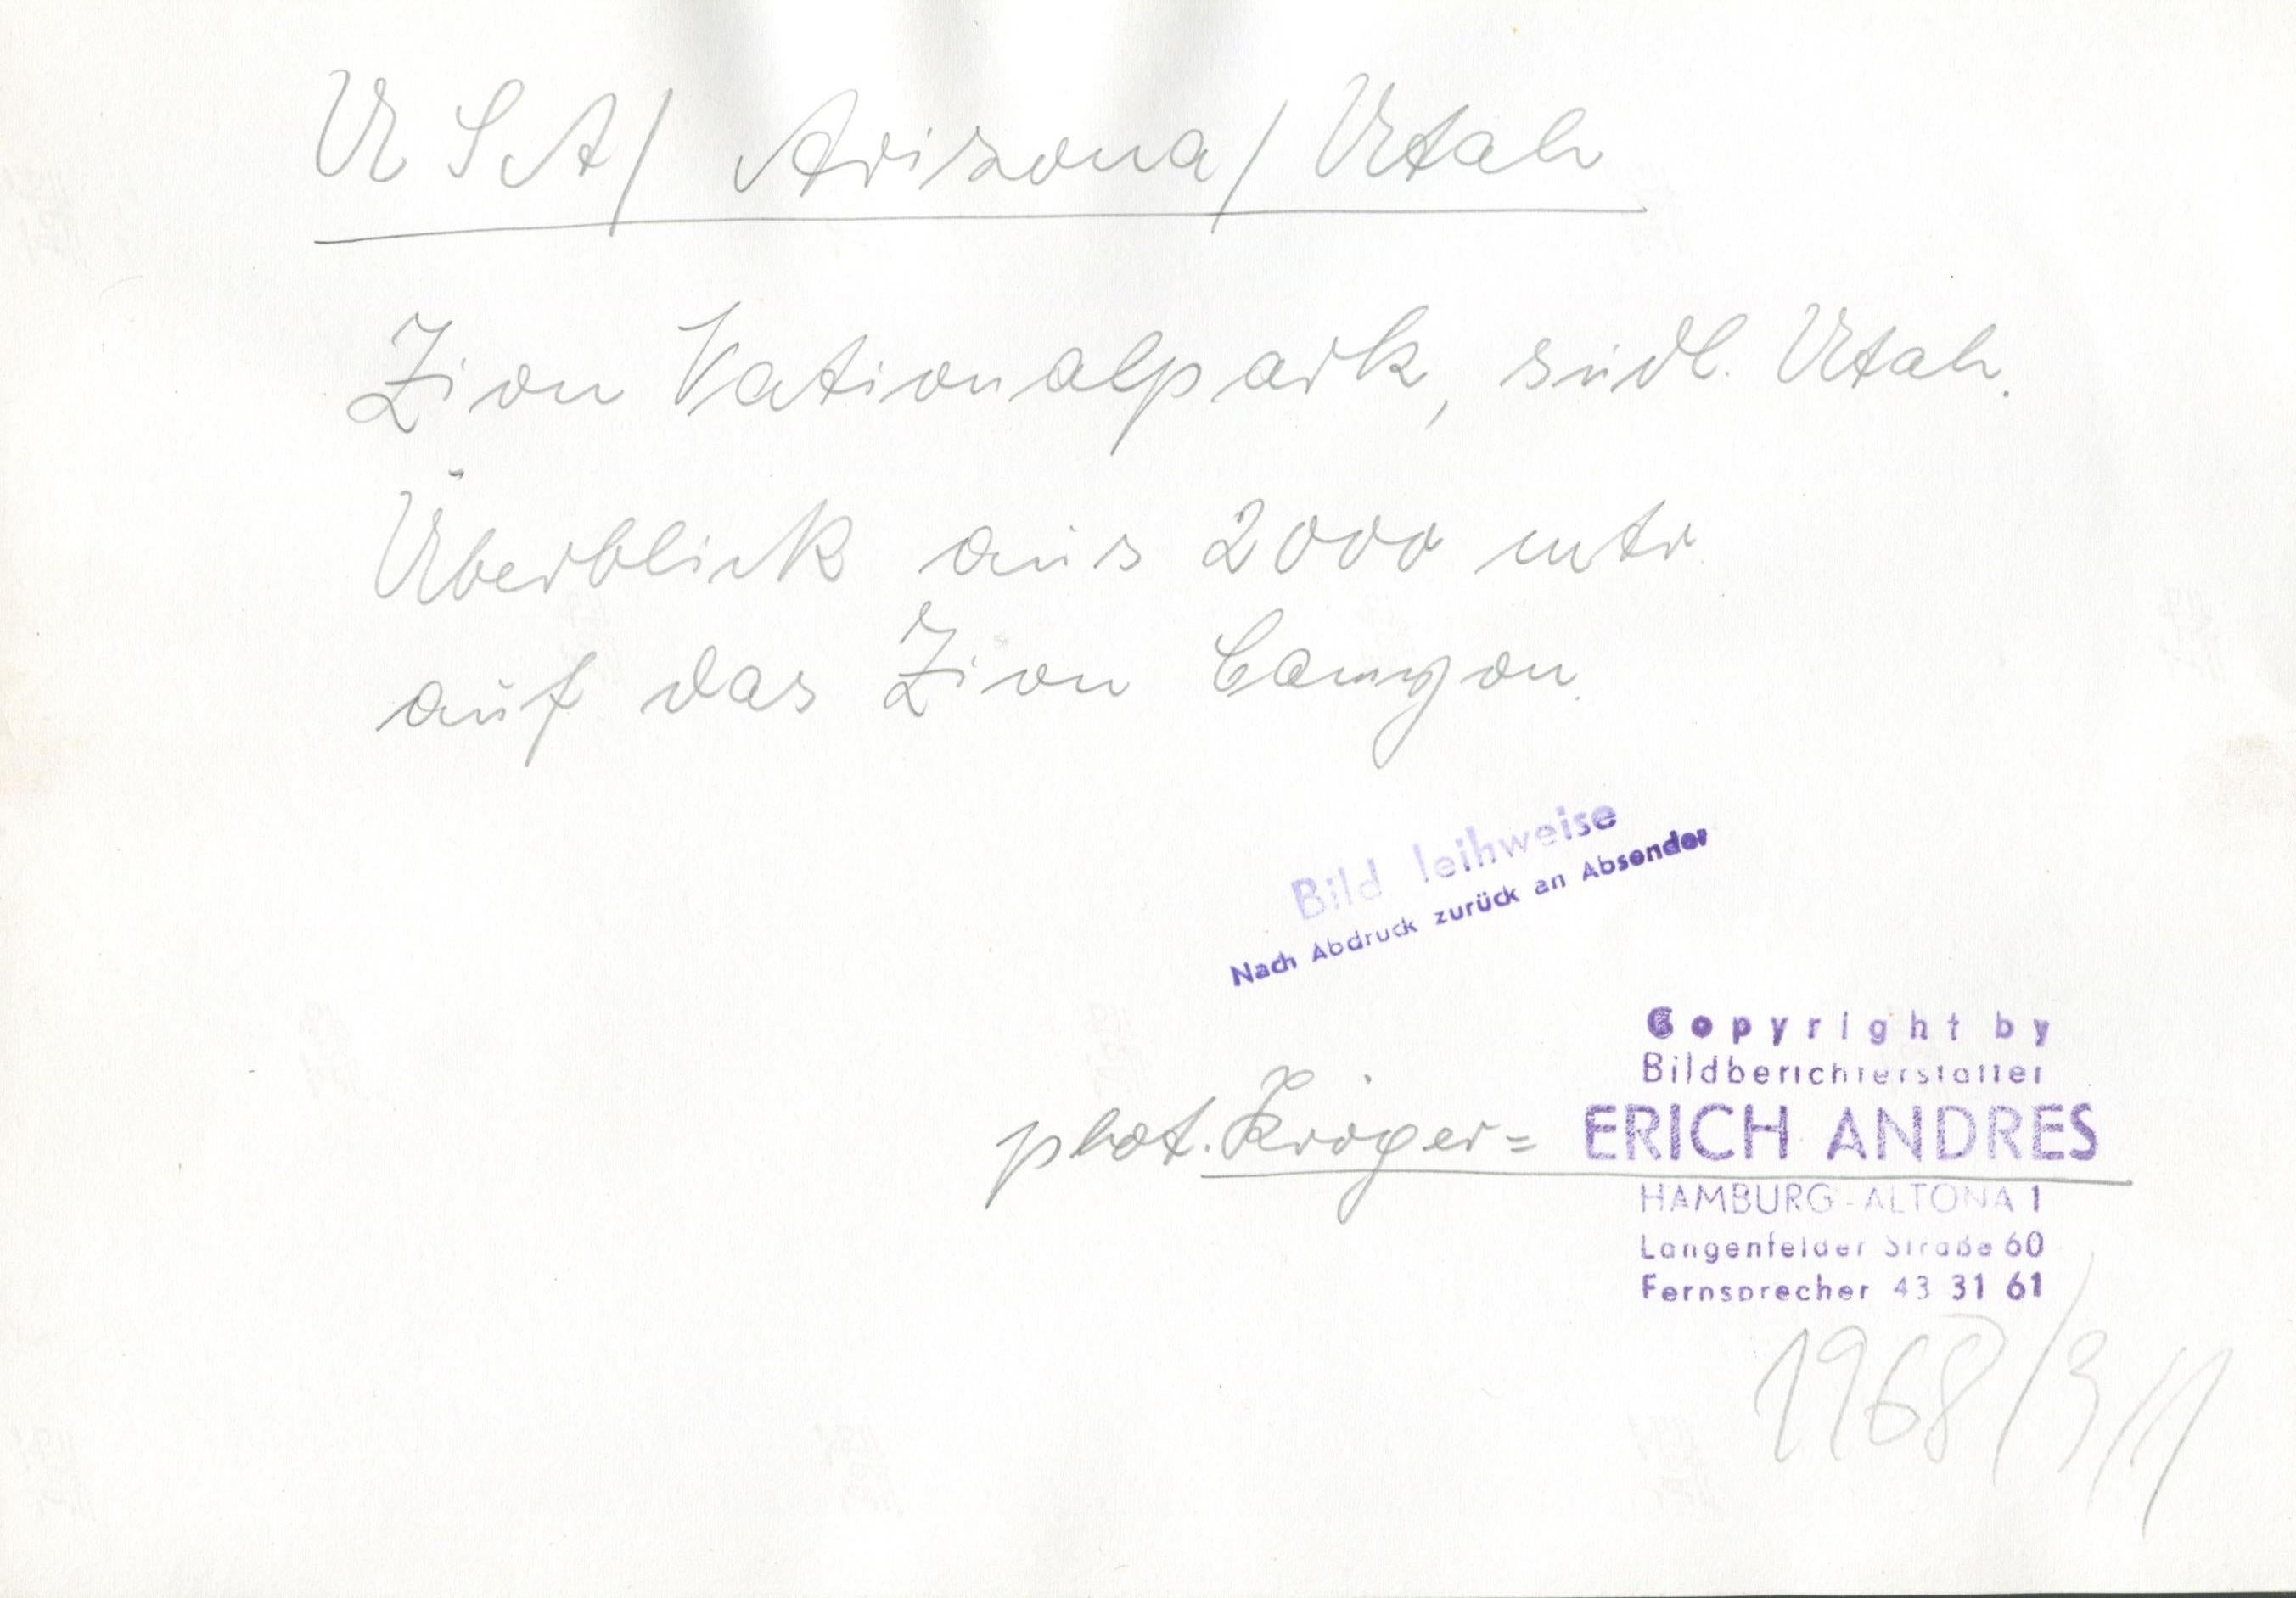 USA/ Arizona/ Utah
Zion Nationalpark, südl. Utah.
Überblick aus 2000 mtr.
auf das Zion Canyon.
Bild leihweise
Nach Abdruck zurück an Absender
Copyright by
Bildberichterstatter
phot. Kröger = ERICH ANDRES
HAMBURG-ALTONA 1
Langenfelder Straße 60
Fernsprecher 43 31 61
1968/